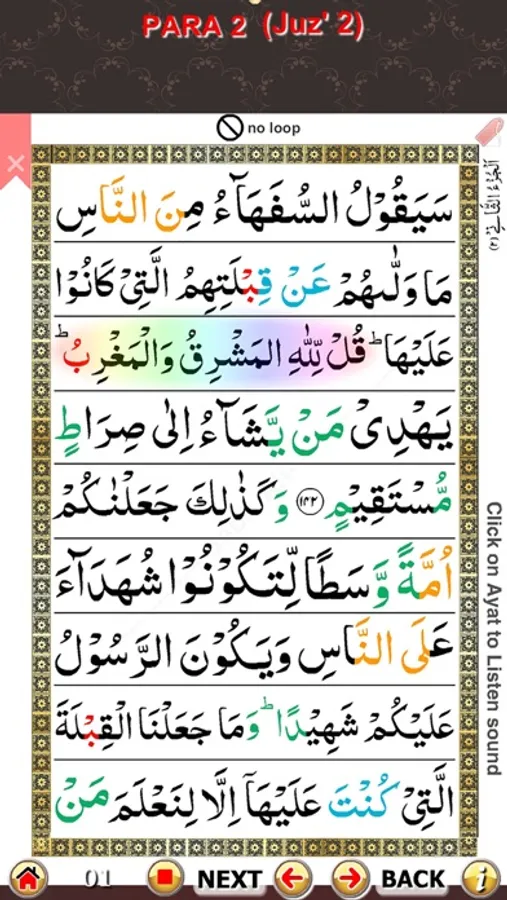 PARA 2 (Juz' 2)
no loop
سَيَقُوْلُ السُّفَهَآءُ مِنَ النَّاسِ
مَا وَلّٰىهُمْ عَنْ قِبْلَتِهِمُ الَّتِىْ كَانُوْا
عَلَيْهَا ؕ قُلْ لِّلّٰهِ الْمَشْرِقُ وَالْمَغْرِبُ ؕ
يَهْدِىْ مَنْ يَّشَآءُ اِلٰى صِرَاطٍ
مُّسْتَقِيْمٍ ﴿۱۴۲﴾ وَكَذٰلِكَ جَعَلْنٰكُمْ
اُمَّةً وَّسَطًا لِّتَكُوْنُوْا شُهَدَآءَ
عَلَى النَّاسِ وَيَكُوْنَ الرَّسُوْلُ
عَلَيْكُمْ شَهِيْدًا ؕ وَمَا جَعَلْنَا الْقِبْلَةَ
الَّتِىْ كُنْتَ عَلَيْهَآ اِلَّا لِنَعْلَمَ مَنْ
Click on Ayat to Listen sound
01 NEXT BACK i